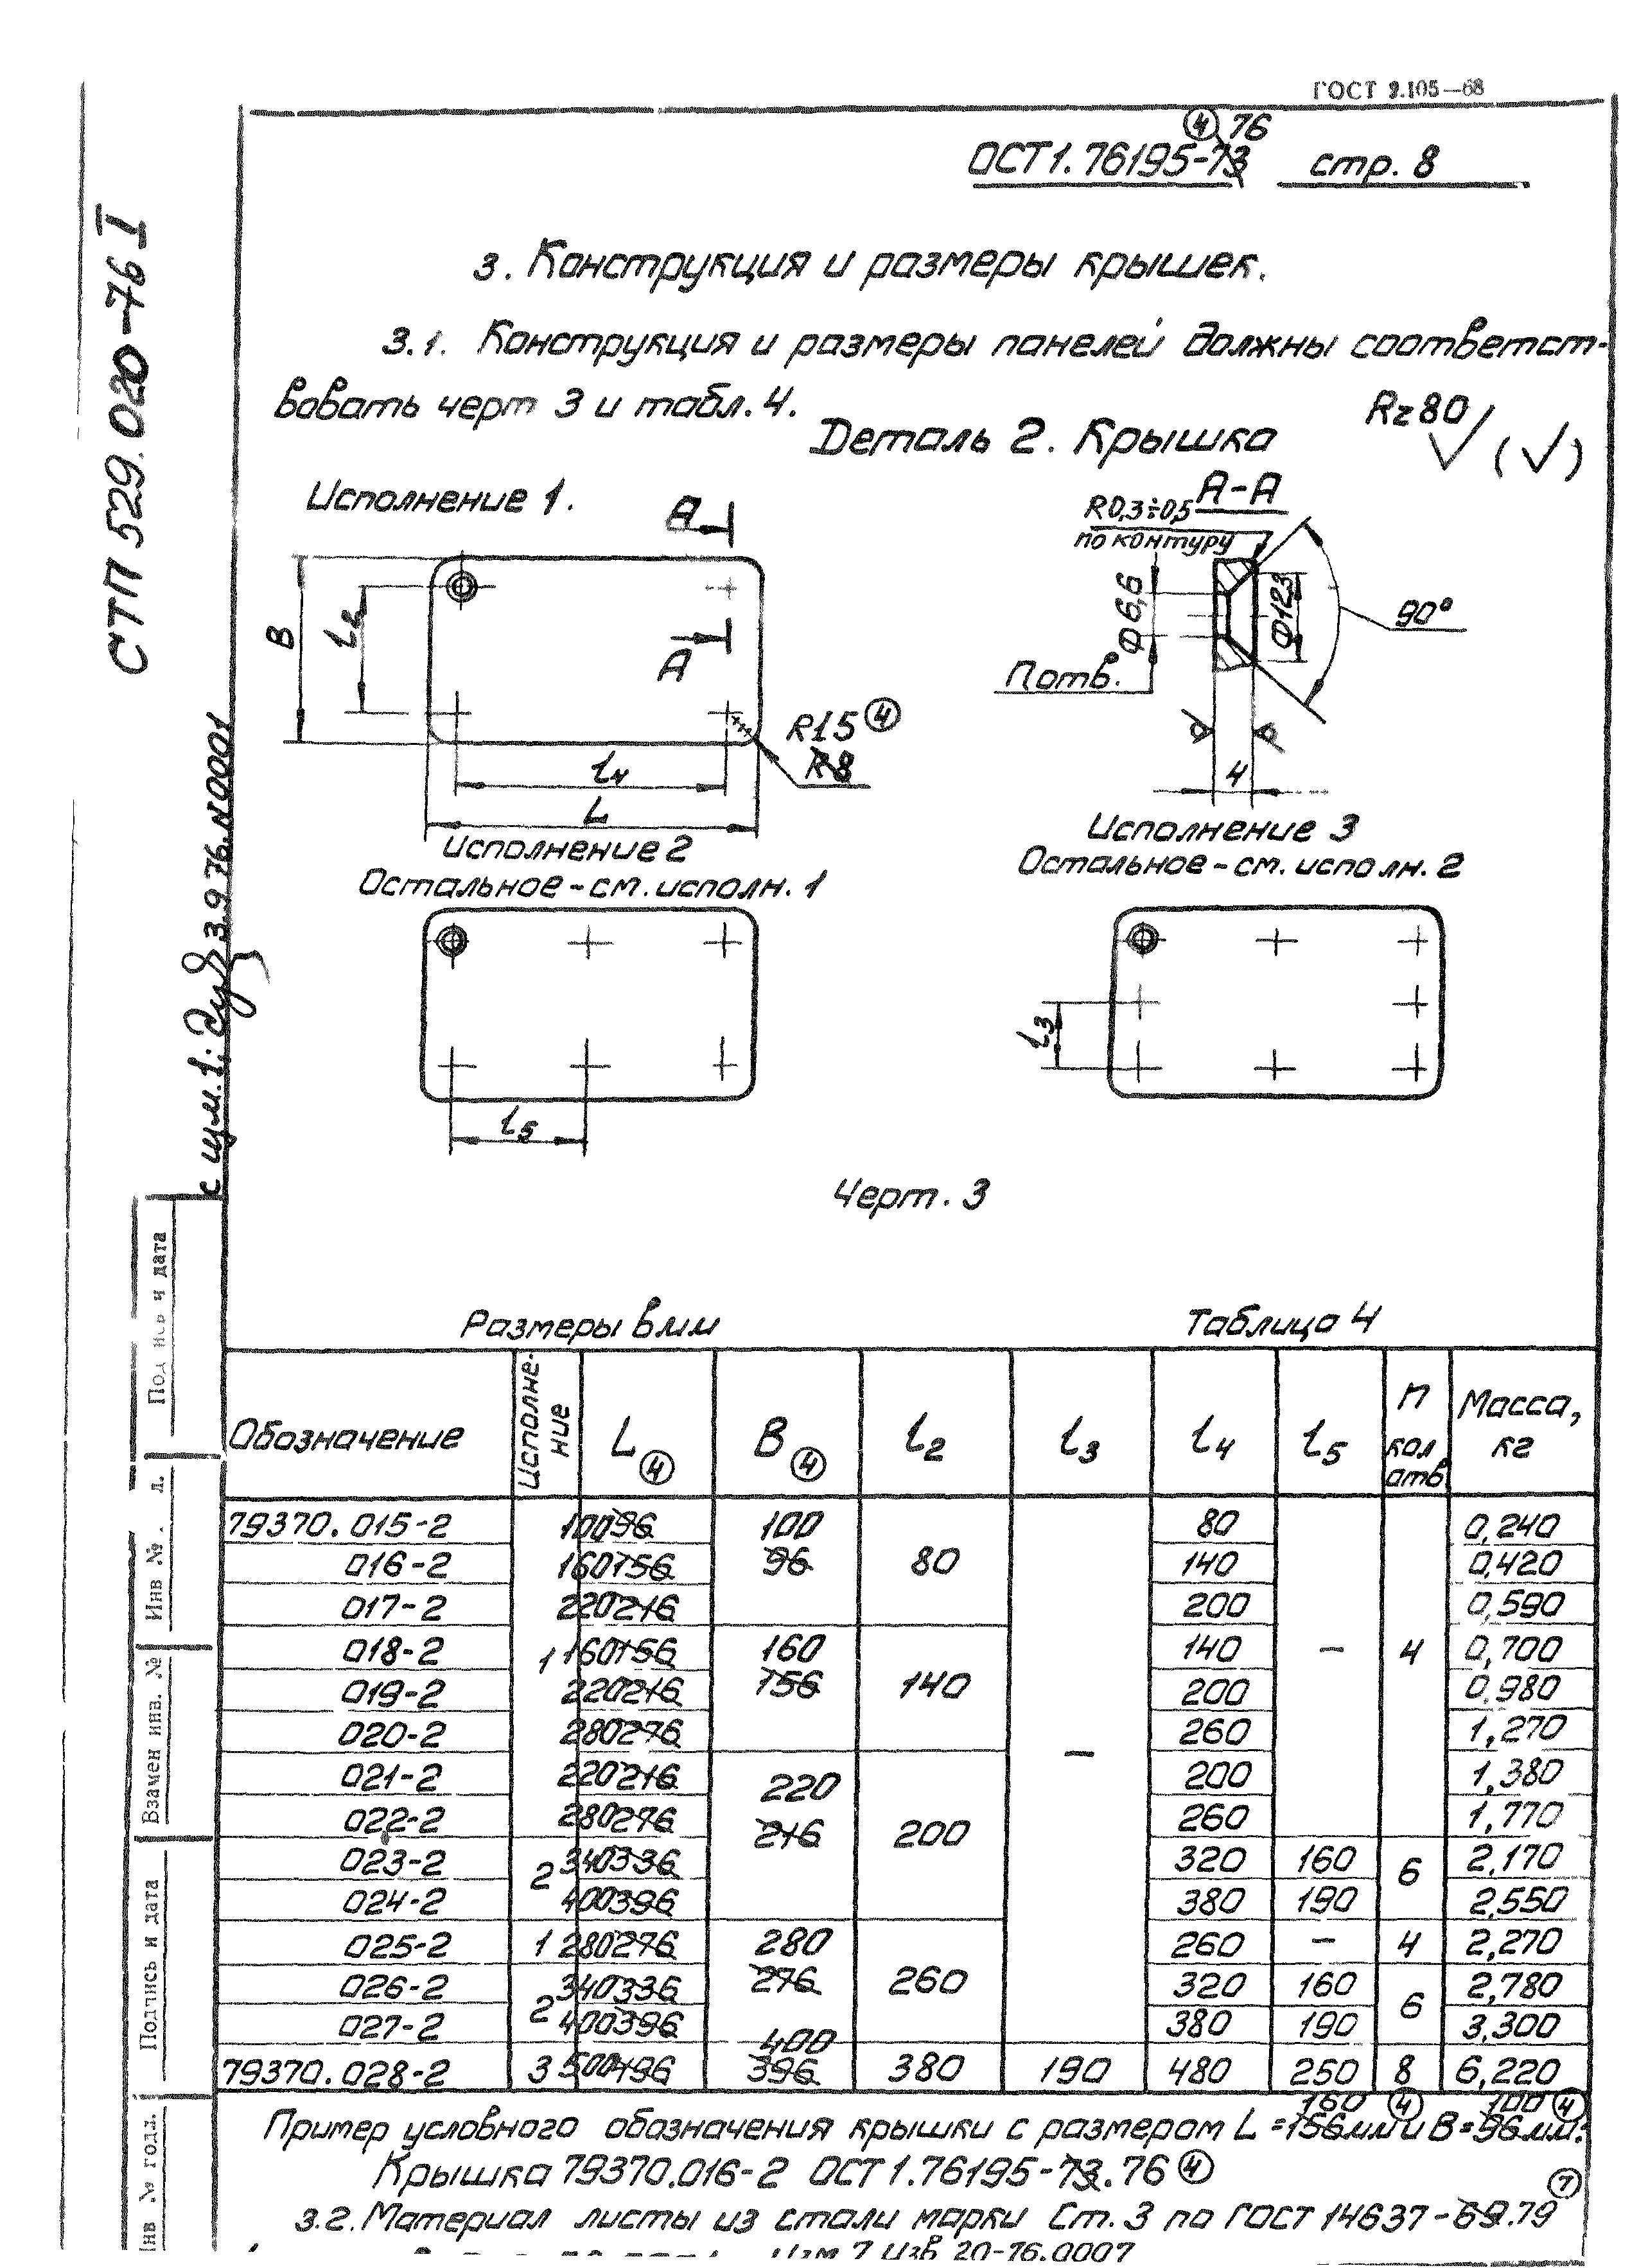 ГОСТ 2.105—68
④ 76
ОСТ1.76195-73 стр. 8
СТП 529.020-76 I
3. Конструкция и размеры крышек.
3.1. Конструкция и размеры панелей должны соответст-
вовать черт 3 и табл. 4.
Деталь 2. Крышка
Rz80 (√)
Исполнение 1.
А
А
А-А
R0,3÷0,5
по контуру
B
l2
l4
L
R15 ④
R8
Ф6,6
Ф12,3
90°
n отв.
4
Исполнение 2
Остальное-см. исполн. 1
Исполнение 3
Остальное-см. исполн. 2
l5
l3
Черт. 3
с изм. 1: 3.9.76. N0001
Размеры в мм Таблица 4
Обозначение Исполне-ние L④ B④ l2 l3 l4 l5 n кол отв Масса, кг
79370.015-2 1 100 96 100 96 80 — 80 — 4 0,240
016-2 160 156 140 0,420
017-2 220 216 200 0,590
018-2 160 156 160 156 140 140 0,700
019-2 220 216 200 0,980
020-2 280 276 260 1,270
021-2 220 216 220 216 200 200 1,380
022-2 280 276 260 1,770
023-2 2 340 336 320 160 6 2,170
024-2 400 396 380 190 2,550
025-2 1 280 276 280 276 260 260 — 4 2,270
026-2 2 340 336 320 160 6 2,780
027-2 400 396 380 190 3,300
79370.028-2 3 500 496 400 396 380 190 480 250 8 6,220
160 ④ 100 ④
Пример условного обозначения крышки с размером L =156мм и B=96мм:
Крышка 79370.016-2 ОСТ 1.76195-73.76 ④
⑦
3.2. Материал листы из стали марки Ст.3 по ГОСТ 14637-69.79
Изм 7 Изв 20-76.0007
Подпись и дата
Инв №
Взамен инв. №
Подпись и дата
Инв № подл.